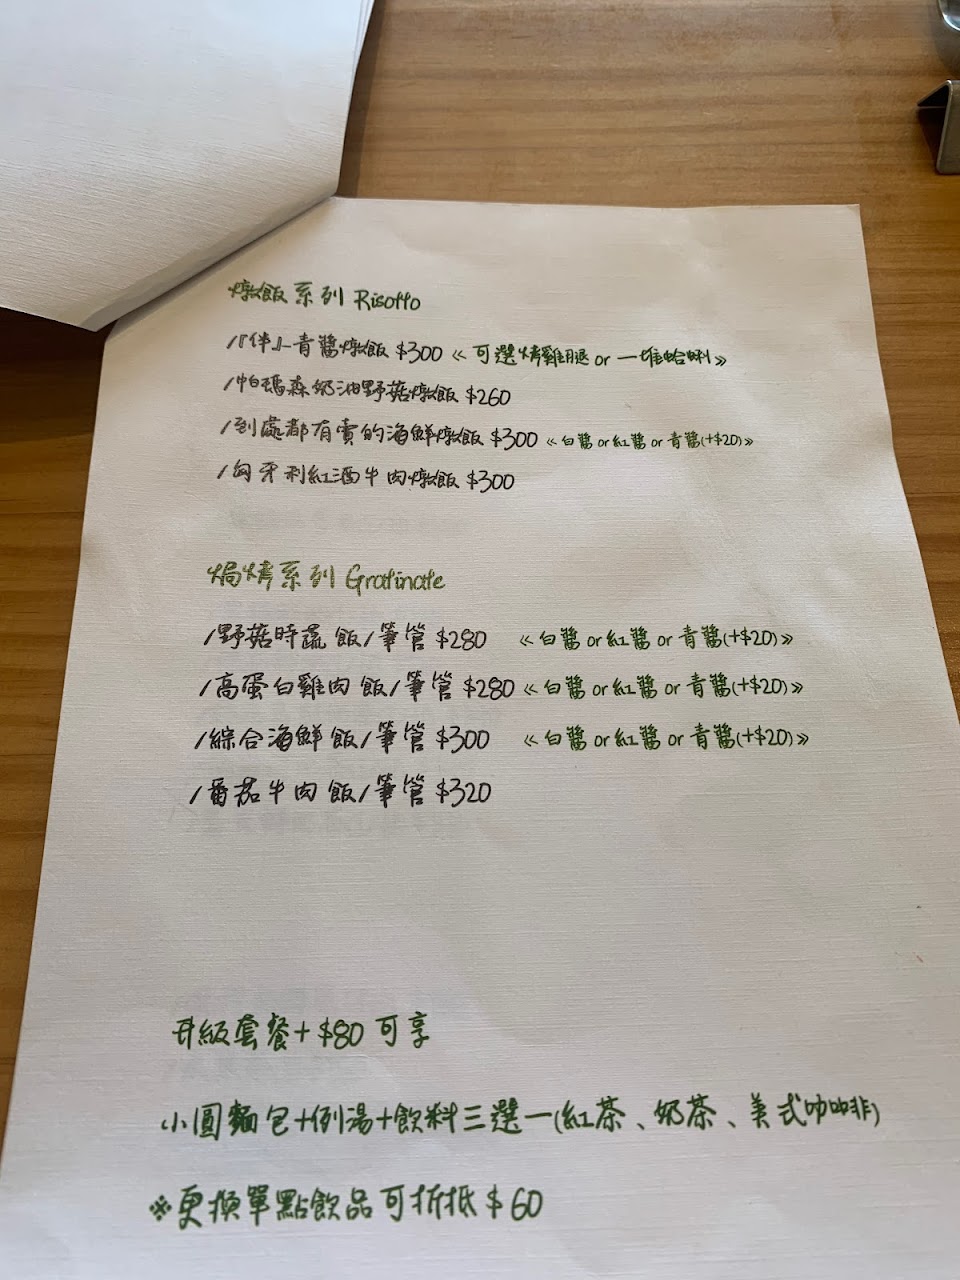 燉飯系列 Risotto
/『伴』青醬燉飯 $300 《 可選烤雞腿 or 一堆蛤蜊 》
/帕瑪森奶油野菇燉飯 $260
/到處都有賣的海鮮燉飯 $300 《 白醬 or 紅醬 or 青醬(+$20) 》
/匈牙利紅酒牛肉燉飯 $300
焗烤系列 Gratinate
/野菇時蔬 飯/筆管 $280 《 白醬 or 紅醬 or 青醬(+$20) 》
/高蛋白雞肉 飯/筆管 $280 《 白醬 or 紅醬 or 青醬(+$20) 》
/綜合海鮮 飯/筆管 $300 《 白醬 or 紅醬 or 青醬(+$20) 》
/番茄牛肉 飯/筆管 $320
升級套餐+$80 可享
小圓麵包+例湯+飲料三選一(紅茶、奶茶、美式咖啡)
※更換單點飲品可折抵 $60